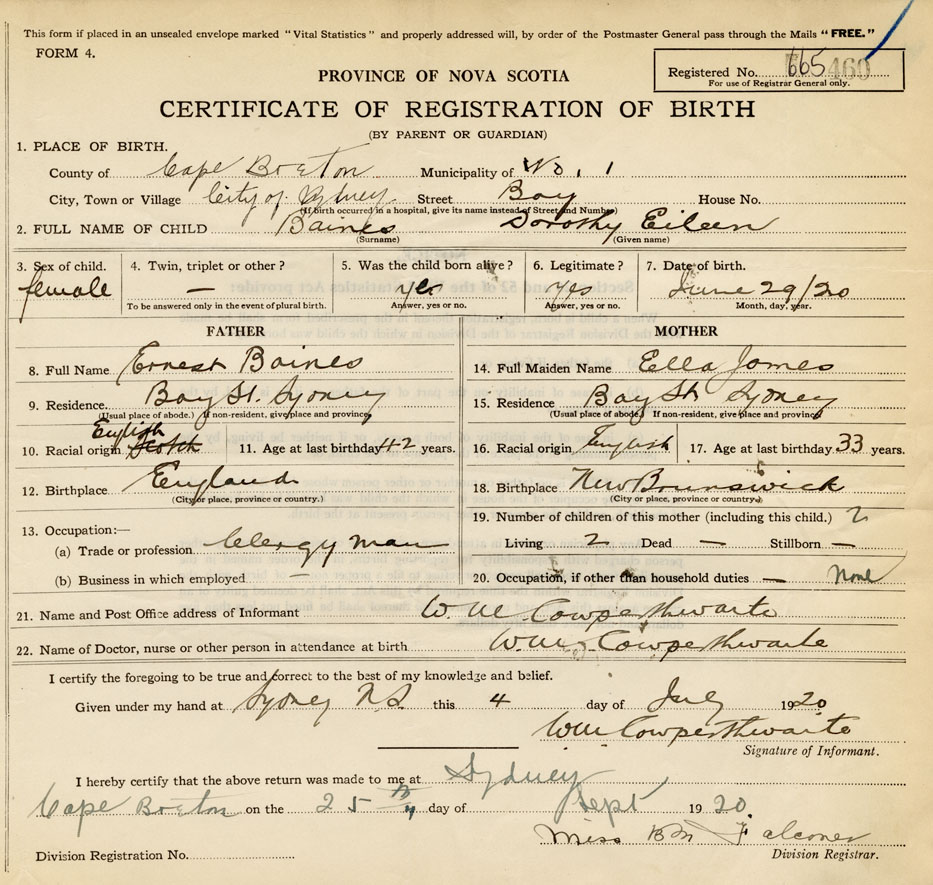 This form if placed in an unsealed envelope marked "Vital Statistics" and properly addressed will, by order of the Postmaster General pass through the Mails "FREE."
FORM 4.
Registered No. 665 460
For use of Registrar General only.
PROVINCE OF NOVA SCOTIA
CERTIFICATE OF REGISTRATION OF BIRTH
(BY PARENT OR GUARDIAN)
1. PLACE OF BIRTH.
County of Cape Breton Municipality of No. 1
City, Town or Village City of Sydney Street Bay House No.
(If birth occurred in a hospital, give its name instead of Street and Number)
2. FULL NAME OF CHILD Baines Dorothy Eileen
(Surname) (Given name)
3. Sex of child. 4. Twin, triplet or other? 5. Was the child born alive? 6. Legitimate? 7. Date of birth.
female — yes yes June 29/20
To be answered only in the event of plural birth. Answer, yes or no. Answer, yes or no. Month, day, year.
FATHER
8. Full Name Ernest Baines
9. Residence. Bay St. Sydney
(Usual place of abode.) If non-resident, give place and province
English
10. Racial origin Scotch 11. Age at last birthday 42 years.
12. Birthplace England
(City or place, province or country.)
13. Occupation:—
(a) Trade or profession Clergyman
(b) Business in which employed —
MOTHER
14. Full Maiden Name Ella Jones
15. Residence Bay St Sydney
(Usual place of abode.) If non-resident, give place and province
16. Racial origin English 17. Age at last birthday 33 years.
18. Birthplace New Brunswick
(City or place, province or country.)
19. Number of children of this mother (including this child.) 2
Living 2 Dead — Stillborn —
20. Occupation, if other than household duties — None
21. Name and Post Office address of Informant W. M Cowperthwaite
22. Name of Doctor, nurse or other person in attendance at birth W. M. Cowperthwaite
I certify the foregoing to be true and correct to the best of my knowledge and belief.
Given under my hand at Sydney N.S. this 4 day of July 1920
WM Cowperthwaite
Signature of Informant.
I hereby certify that the above return was made to me at Sydney
Cape Breton on the 25th day of Sept 1920
Miss BM Falconer
Division Registration No. Division Registrar.